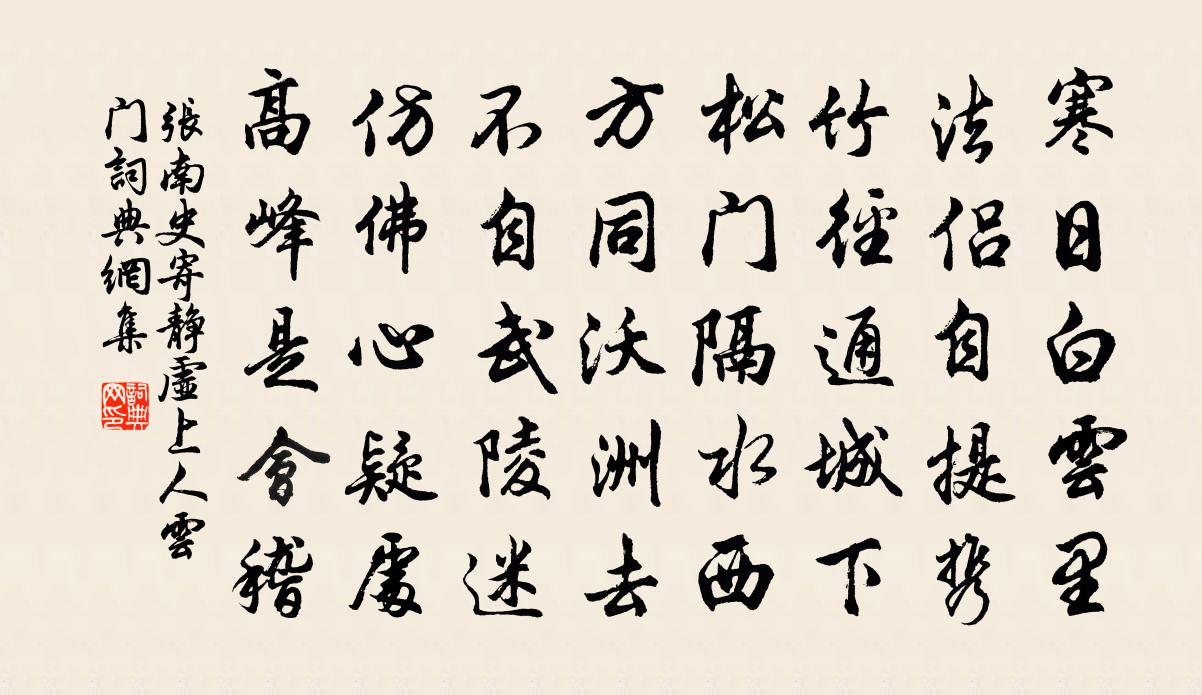 寒日白雲里
法侣自提携
竹徑通城下
松门隔水西
方同沃洲去
不自武陵迷
仿佛心疑處
高峰是會稽
張南史寄静虛上人雲
门詞典網集
詞典网印